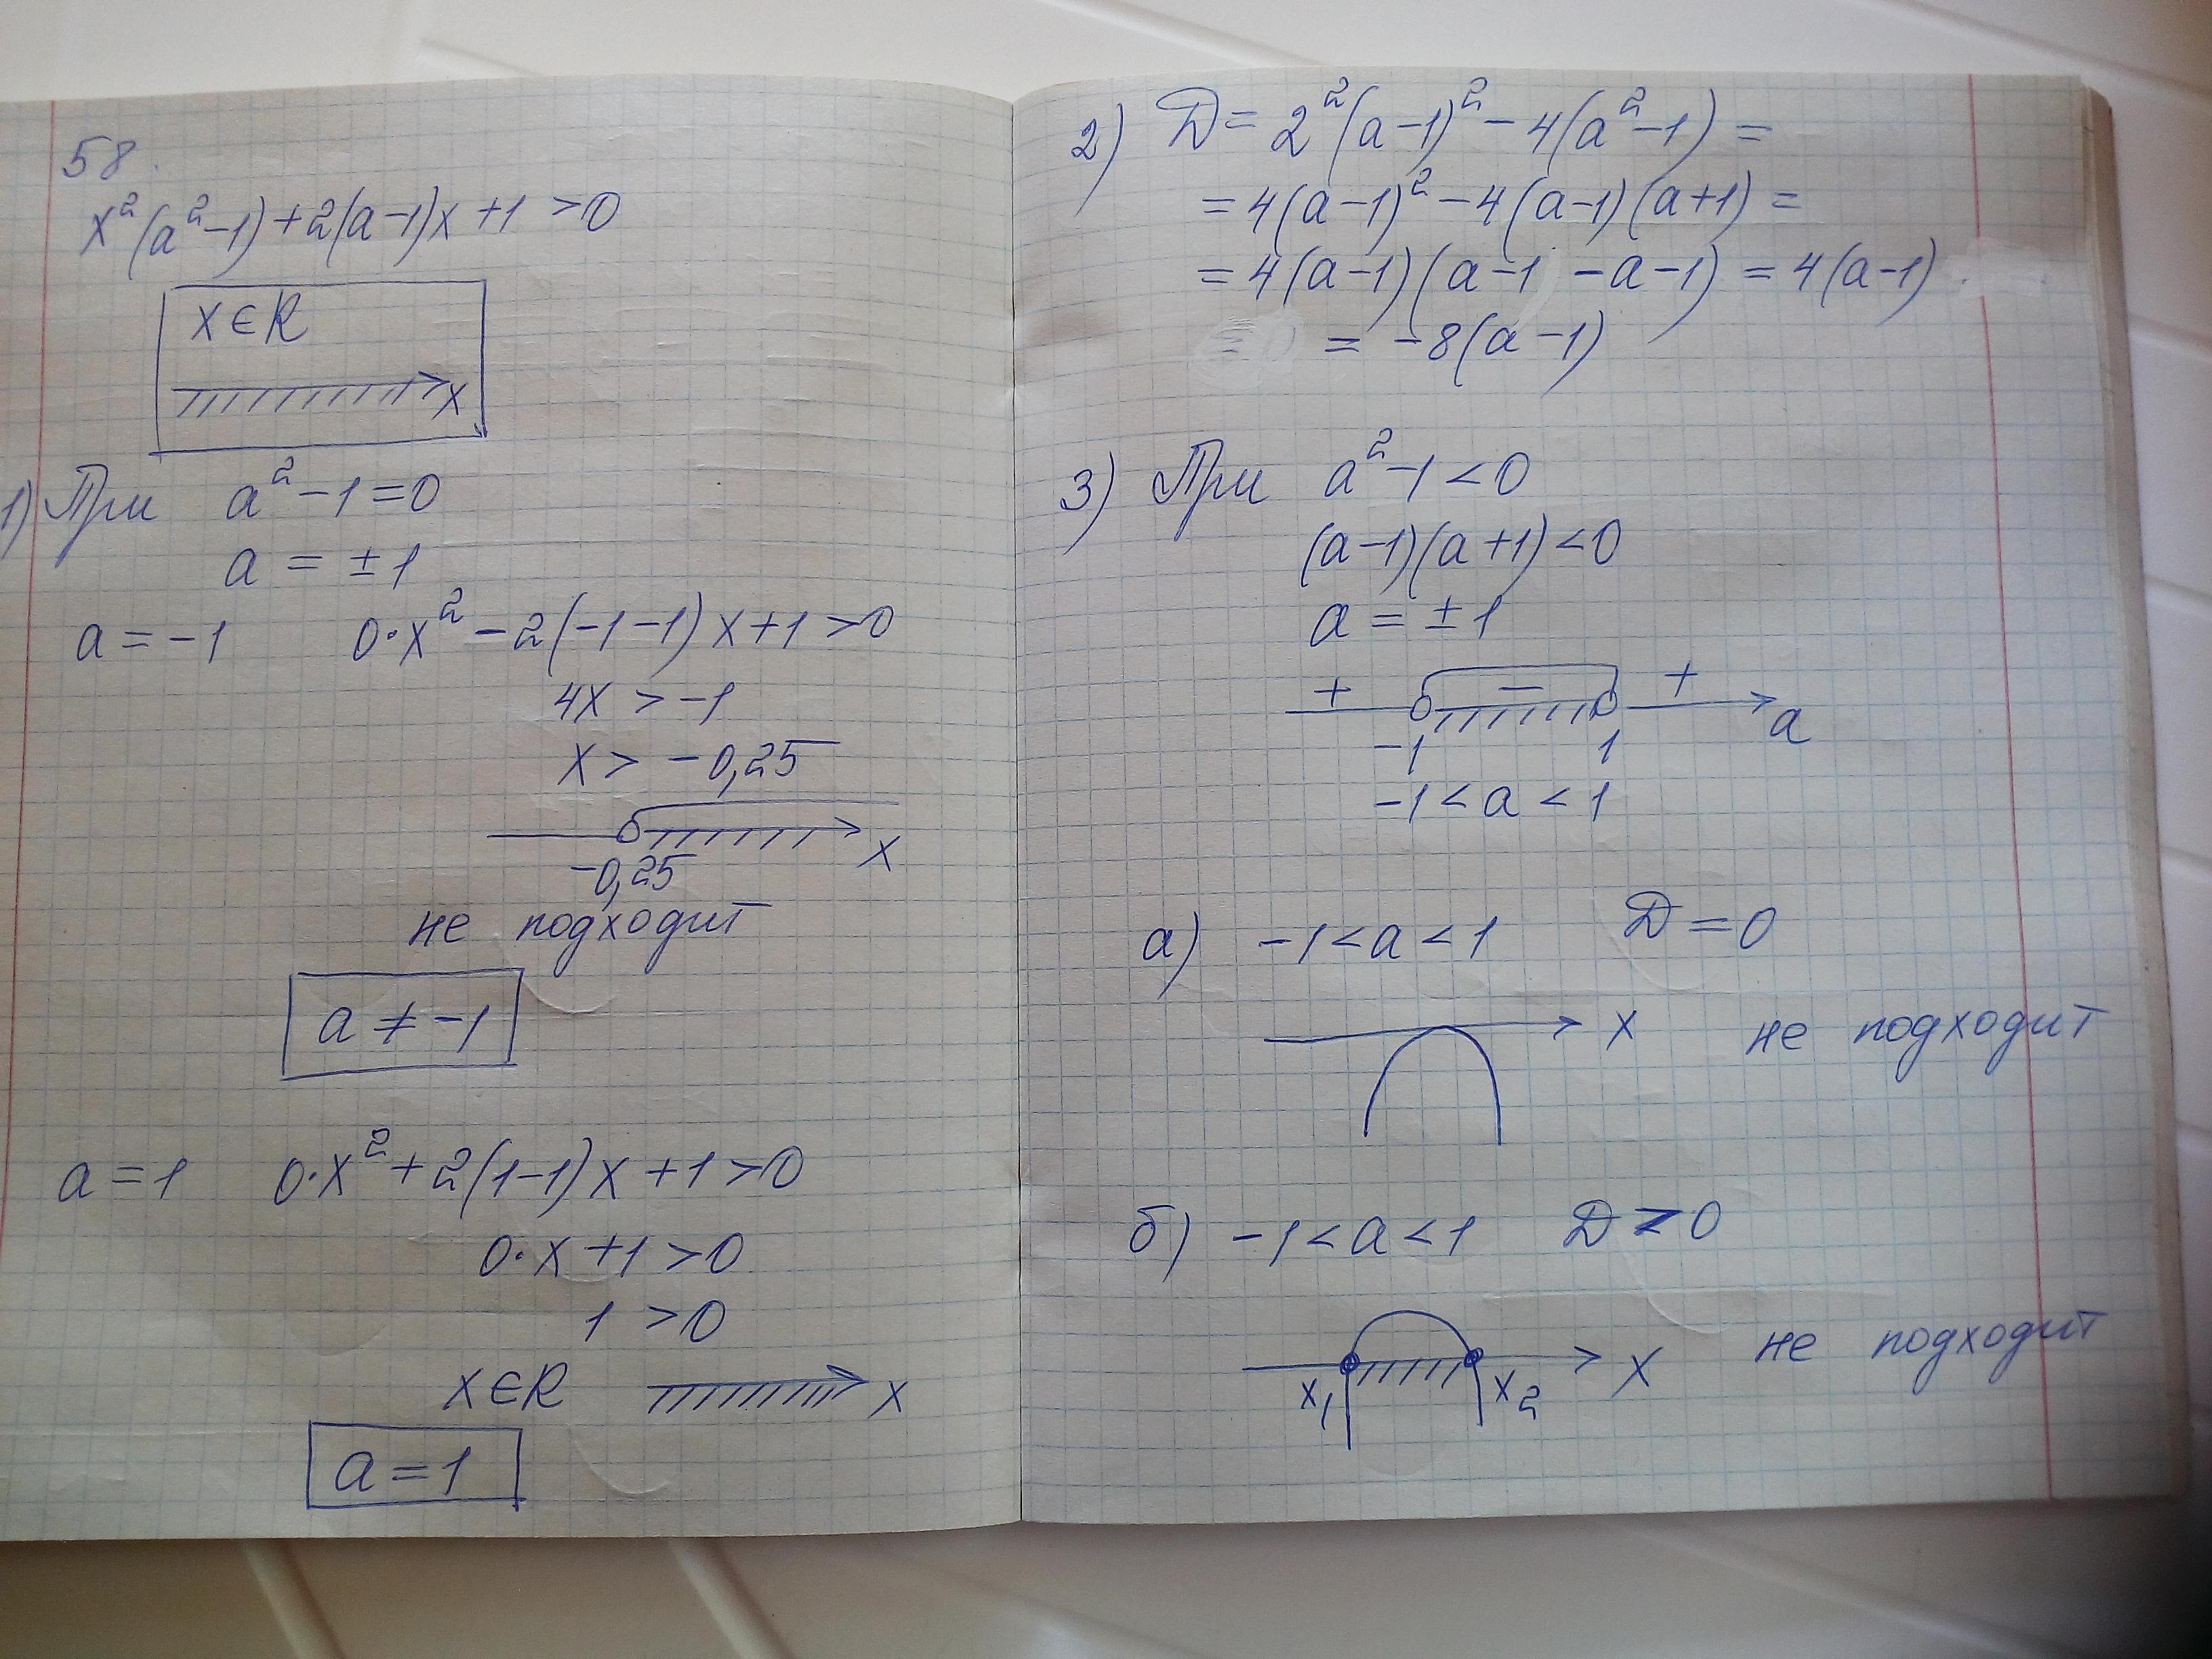 58.
x²(a²-1)+2(a-1)x+1>0
x∈R
x
1) При a²-1=0
a = ±1
a = -1 0·x²-2(-1-1)x+1>0
4x > -1
x > -0,25
x
-0,25
не подходит
a ≠ -1
a = 1 0·x²+2(1-1)x+1>0
0·x+1>0
1 >0
x∈R x
a = 1
2) D = 2²(a-1)²-4(a²-1) =
= 4(a-1)²-4(a-1)(a+1) =
= 4(a-1)(a-1 -a-1) = 4(a-1)
= -8(a-1)
3) При a²-1<0
(a-1)(a+1)<0
a = ±1
+ - + a
-1 1
-1 < a < 1
а) -1 < a < 1 D = 0
x не подходит
б) -1 < a < 1 D > 0
x не подходит
x₁ x₂